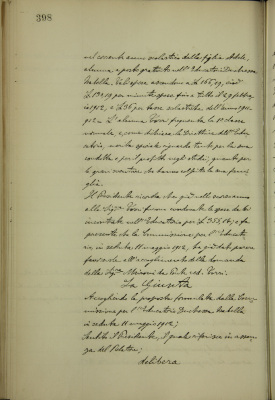 398
nel corrente anno scolastico dalla figlia Adele,
alunna a posto gratuito nell'Educatorio Duchessa
Isabella. Tale spesa ascendeva a £. 165,19, cioè
£. 129,19 per minute spese fino a tutto il 29 febbraio
1912, e £. 36 per tasse scolastiche dell'anno 1911-
912. L'alunna Torri frequenta la 1ª classe
normale, e, come dichiara la Direttrice dell'Educa-
torio, merita speciale riguardo tanto per la sua
condotta e per il profitto negli studi, quanto per
le gravi sventure che hanno colpito la sua fami-
glia.
Il Presidente ricorda che già nell'anno scorso
alla Sig.ra Torri furono condonate le spese da lei
incontrate nell'Educatorio per £.
presente che la Commissione per l'Educato-
rio, in seduta 11 maggio 1912, ha già dato parere
favorevole all'accoglimento della domanda
della Sig.ra Torri.
La Giunta
Accogliendo la proposta formulata dalla Com-
missione per l'Educatorio Duchessa Isabella
in seduta 11 maggio 1912;
Sentito il Presidente, il quale riferisce in assen-
za del Relatore;
delibera